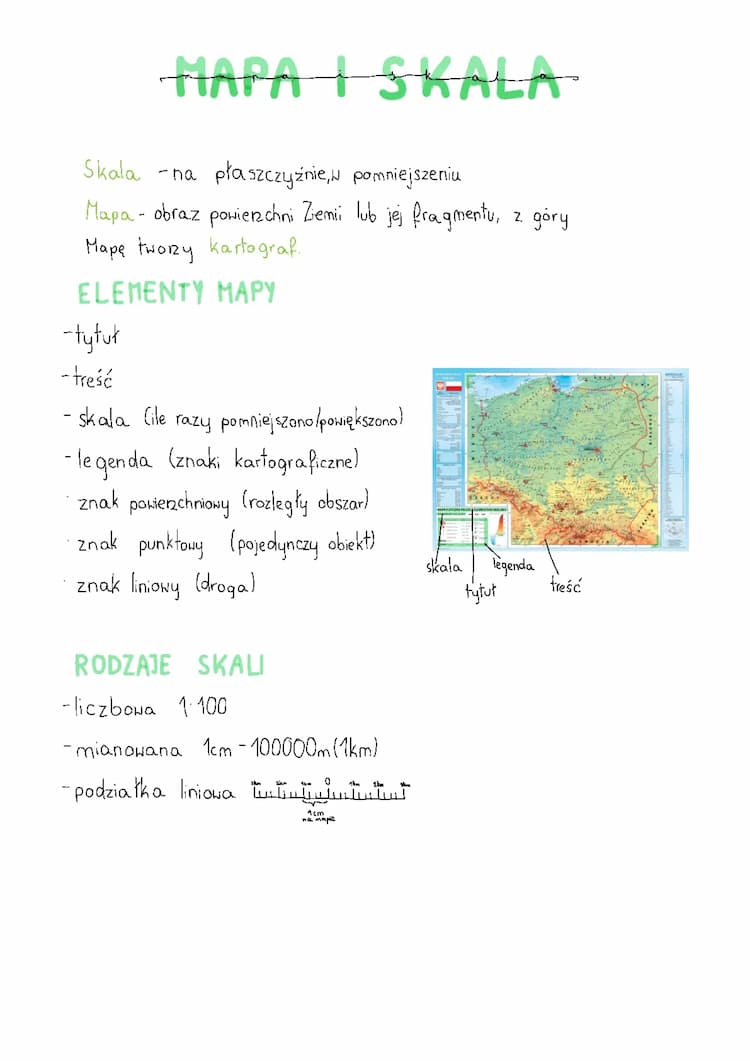 MAPA I SKALA
mapa i skala
Skala - na płaszczyźnie, w pomniejszeniu
Mapa - obraz powierzchni Ziemii lub jej fragmentu, z góry
Mapę tworzy kartograf.
ELEMENTY MAPY
- tytuł
- treść
- skala (ile razy pomniejszono/powiększono)
- legenda (znaki kartograficzne)
· znak powierzchniowy (rozległy obszar)
· znak punktowy (pojedynczy obiekt)
· znak liniowy (droga)
skala
legenda
tytuł
treść
RODZAJE SKALI
- liczbowa 1:100
- mianowana 1cm - 100000m (1km)
- podziałka liniowa
0
1cm
na mapie